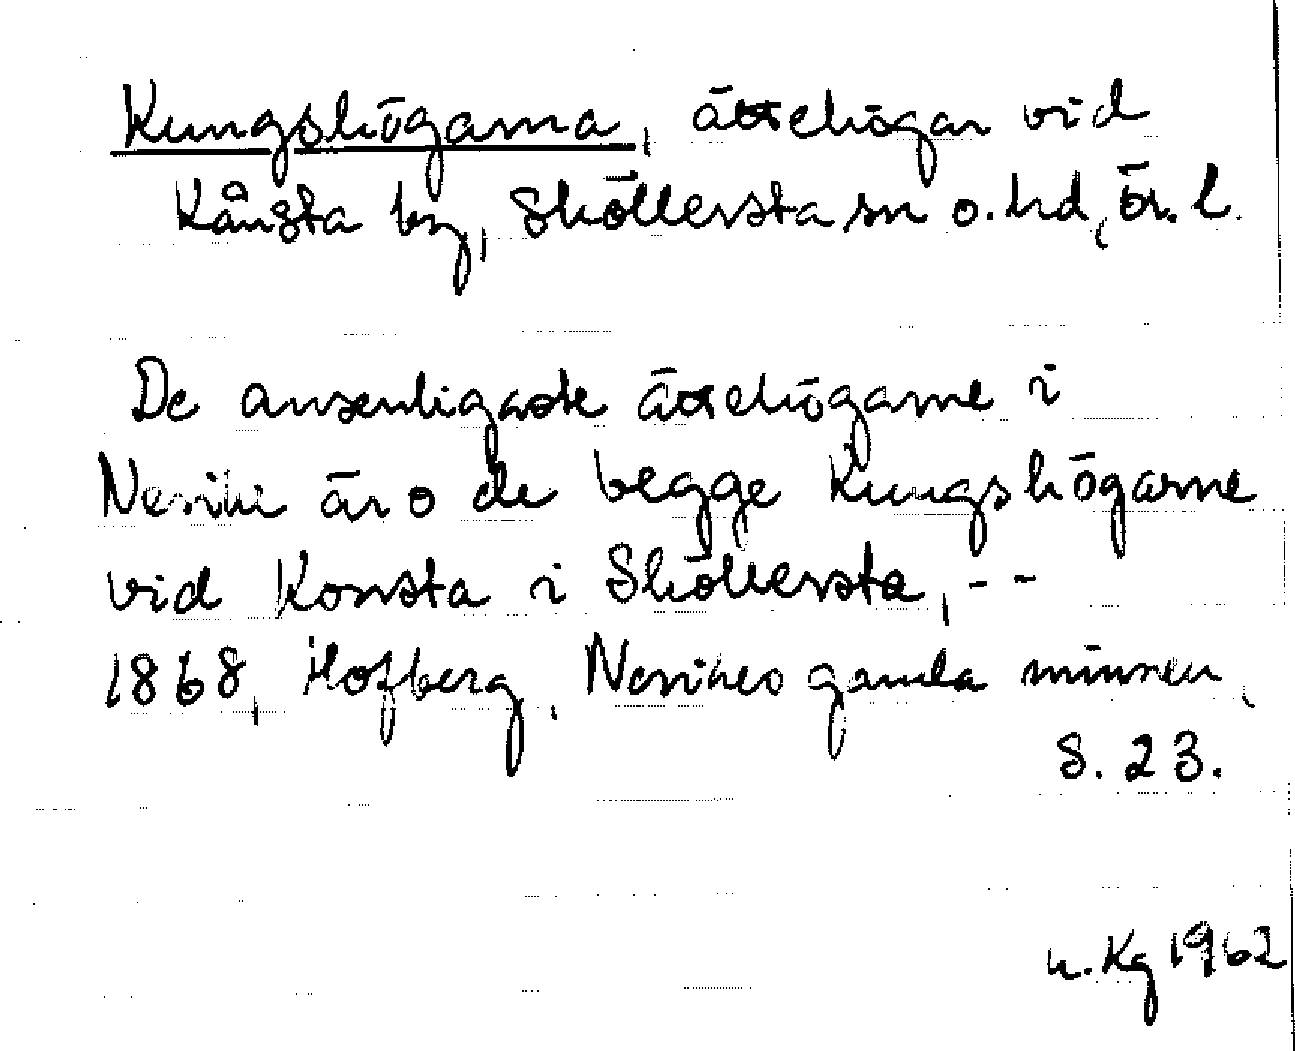 Kungshögarna, ättehögar vid
Kånsta by, Sköllersta sn o. hd, ör. l.
De ansenligaste ättehögarne i
Nerike äro de begge Kungshögarne
vid Konsta i Sköllersta, - -
1868, Hofberg, Nerikes gamla minnen,
S. 23.
u. Kg 1962